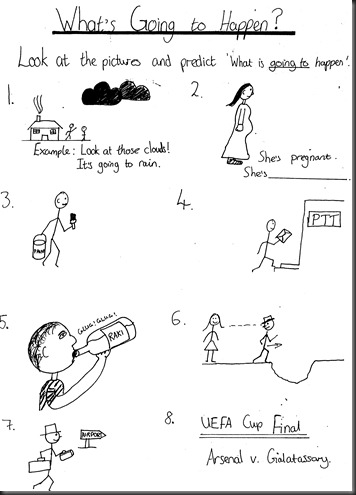 What's Going to Happen?
Look at the pictures and predict 'What is going to happen'.
1.
2.
Example: Look at those clouds!
It's going to rain.
She's pregnant.
She's
3.
4.
PAINT
PTT
5.
GLUG! GLUG!
RAKI
6.
7.
AIRPORT
8.
UEFA Cup Final
Arsenal v. Galatassary.